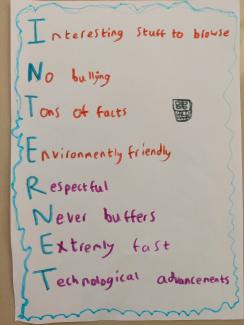 Interesting stuff to blowse
No bullying
Tons of facts
Environmently friendly
Respectful
Never buffers
Extremly fast
Technological advancements